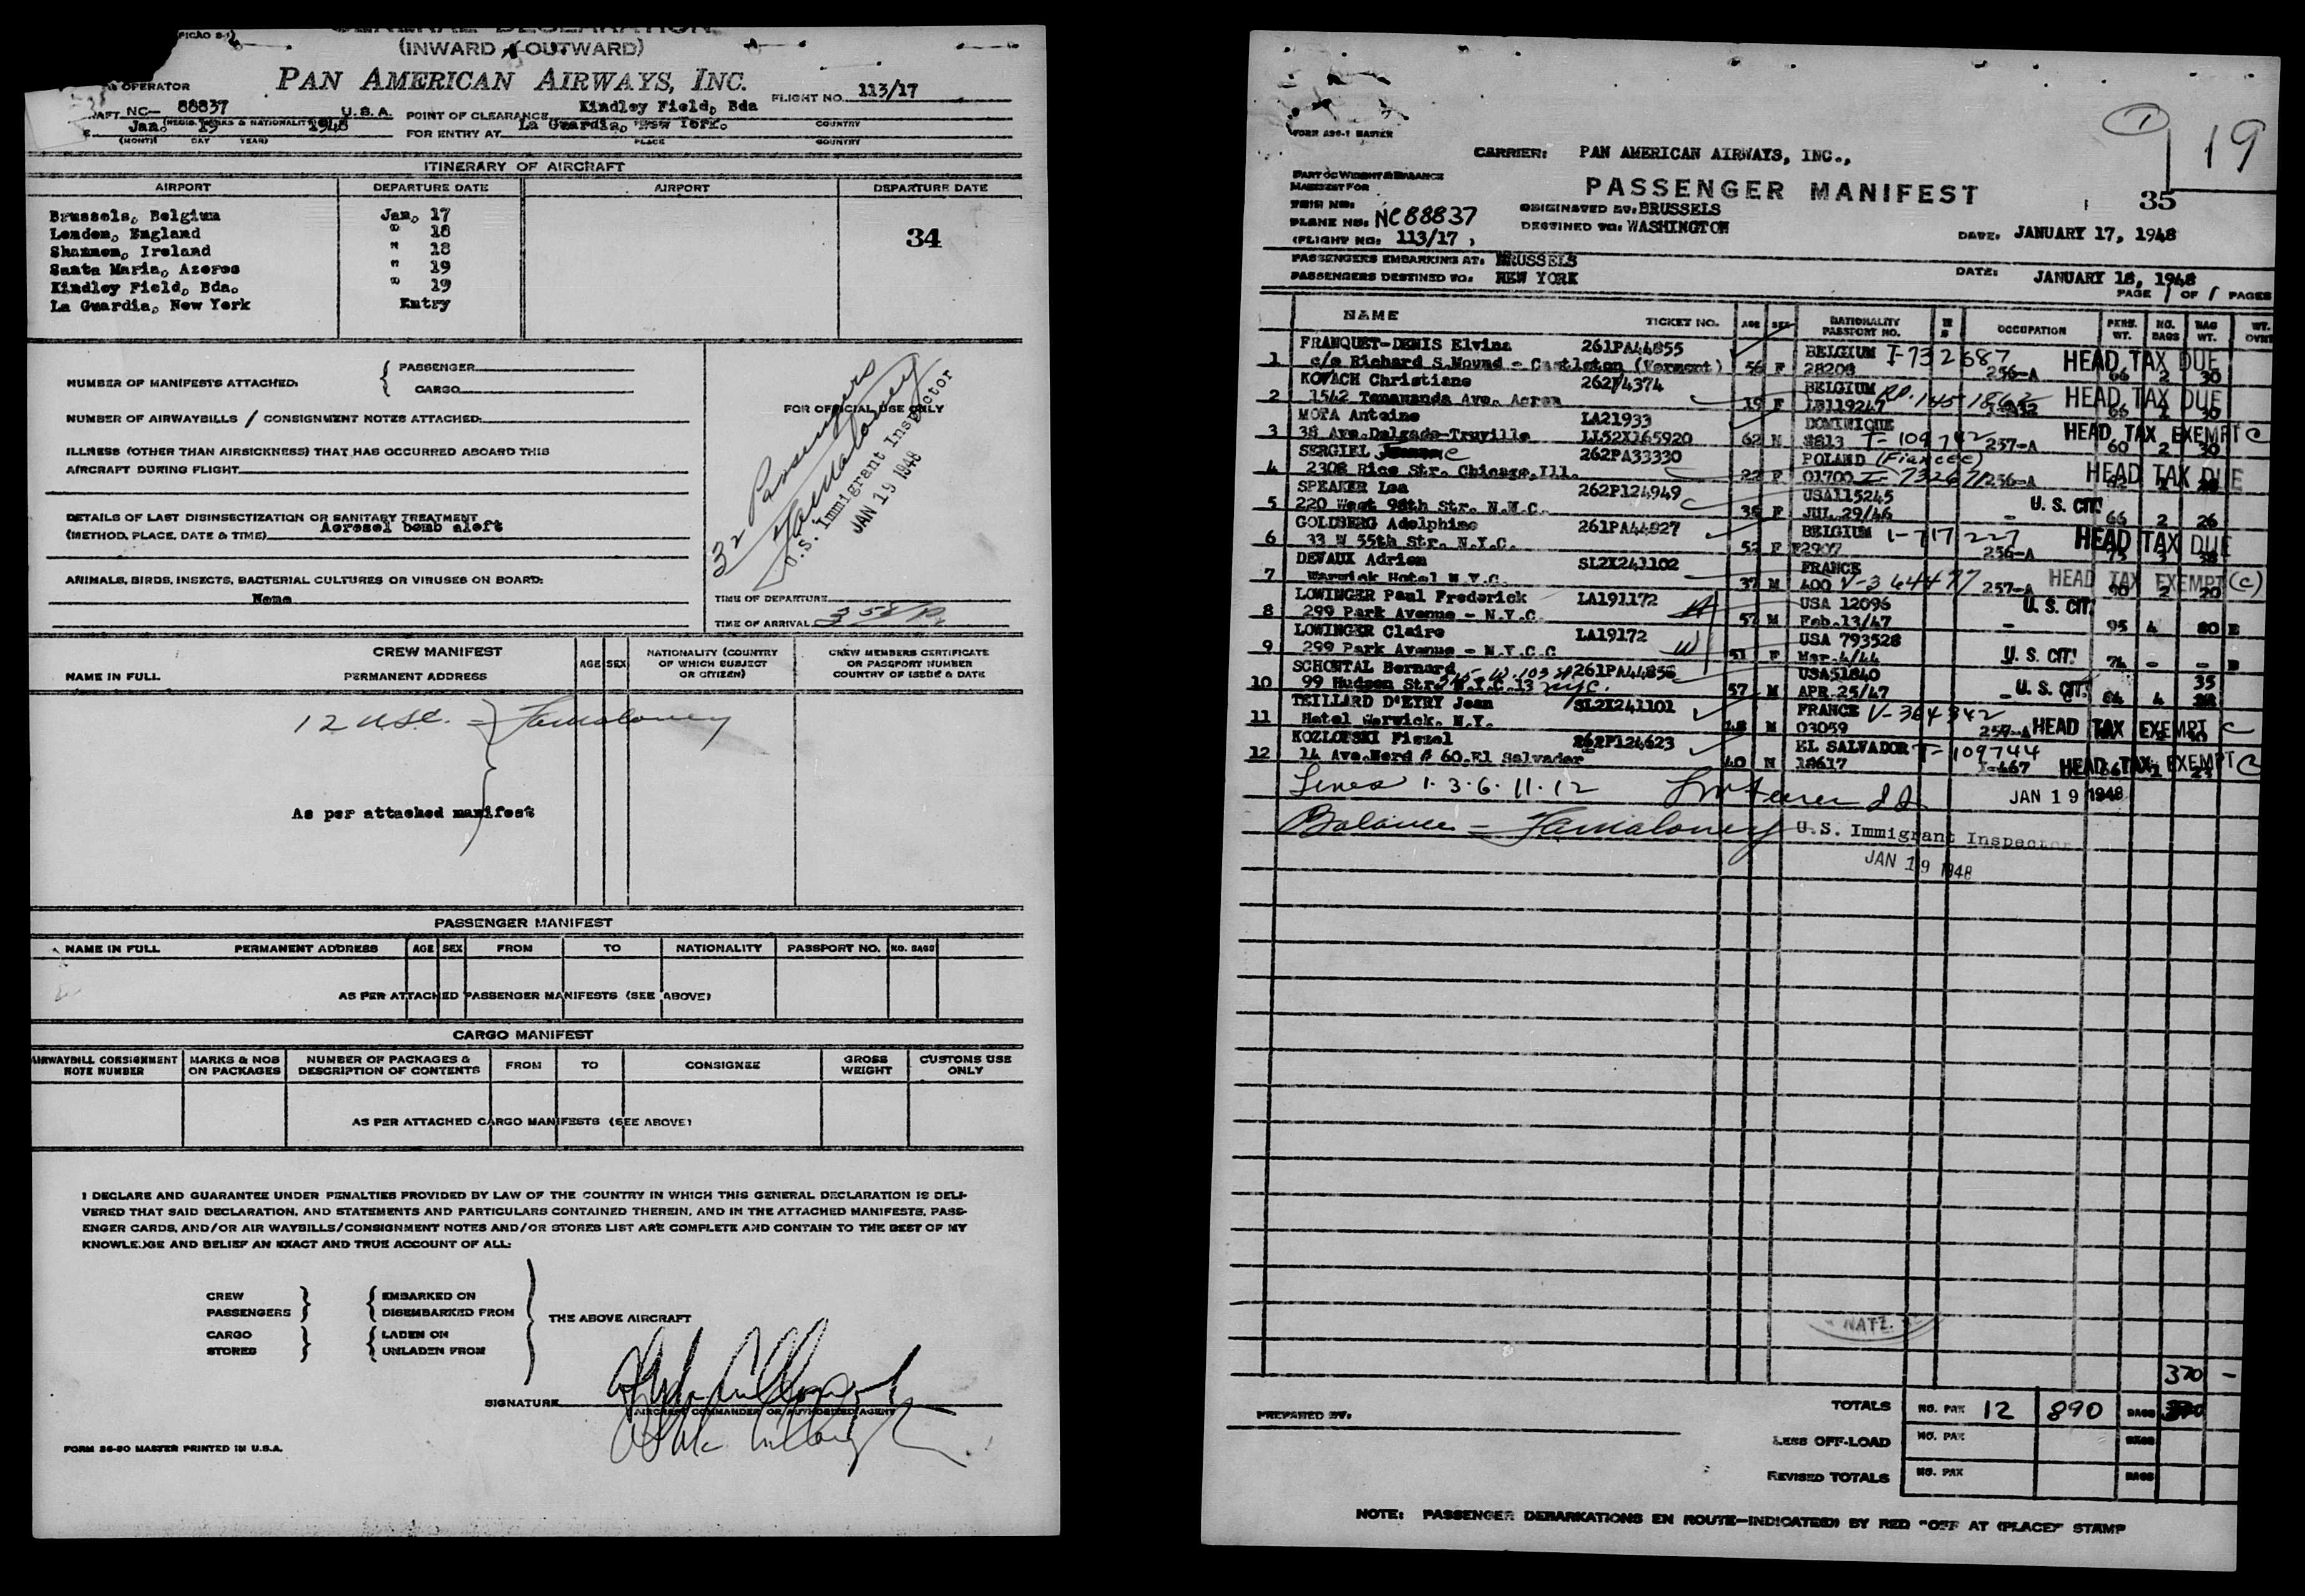 (INWARD X OUTWARD)
OPERATOR
PAN AMERICAN AIRWAYS, INC.
FLIGHT NO. 113/17
NC— 88837 U.S.A.
POINT OF CLEARANCE Kindley Field, Bda
COUNTRY
Jan. 19 1948
FOR ENTRY AT La Guardia, New York.
(MONTH DAY YEAR)
PLACE COUNTRY
ITINERARY OF AIRCRAFT
AIRPORT DEPARTURE DATE AIRPORT DEPARTURE DATE
Brussels, Belgium Jan. 17
London, England " 18
34
Shannon, Ireland " 18
Santa Maria, Azores " 19
Kindley Field, Bda. " 19
La Guardia, New York Entry
NUMBER OF MANIFESTS ATTACHED: { PASSENGER
CARGO
FOR OFFICIAL USE ONLY
NUMBER OF AIRWAYBILLS / CONSIGNMENT NOTES ATTACHED:
32 Passengers
U. S. Immigrant Inspector
JAN 19 1948
ILLNESS (OTHER THAN AIRSICKNESS) THAT HAS OCCURRED ABOARD THIS
AIRCRAFT DURING FLIGHT
DETAILS OF LAST DISINSECTIZATION OR SANITARY TREATMENT
(METHOD, PLACE, DATE & TIME) Aerosol bomb aloft
ANIMALS, BIRDS, INSECTS, BACTERIAL CULTURES OR VIRUSES ON BOARD:
None
TIME OF DEPARTURE
TIME OF ARRIVAL
CREW MANIFEST
NAME IN FULL PERMANENT ADDRESS AGE SEX
NATIONALITY (COUNTRY
OF WHICH SUBJECT
OR CITIZEN)
CREW MEMBERS CERTIFICATE
OR PASSPORT NUMBER
COUNTRY OF ISSUE & DATE
12 USC.
As per attached manifest
PASSENGER MANIFEST
NAME IN FULL PERMANENT ADDRESS AGE SEX FROM TO NATIONALITY PASSPORT NO. NO. BAGS
AS PER ATTACHED PASSENGER MANIFESTS (SEE ABOVE)
CARGO MANIFEST
AIRWAYBILL CONSIGNMENT
NOTE NUMBER
MARKS & NOS
ON PACKAGES
NUMBER OF PACKAGES &
DESCRIPTION OF CONTENTS
FROM TO CONSIGNEE
GROSS
WEIGHT
CUSTOMS USE
ONLY
AS PER ATTACHED CARGO MANIFESTS (SEE ABOVE)
I DECLARE AND GUARANTEE UNDER PENALTIES PROVIDED BY LAW OF THE COUNTRY IN WHICH THIS GENERAL DECLARATION IS DELI-
VERED THAT SAID DECLARATION, AND STATEMENTS AND PARTICULARS CONTAINED THEREIN, AND IN THE ATTACHED MANIFESTS, PASS-
ENGER CARDS, AND/OR AIR WAYBILLS/CONSIGNMENT NOTES AND/OR STORES LIST ARE COMPLETE AND CONTAIN TO THE BEST OF MY
KNOWLEDGE AND BELIEF AN EXACT AND TRUE ACCOUNT OF ALL:
CREW
PASSENGERS
EMBARKED ON
DISEMBARKED FROM
THE ABOVE AIRCRAFT
CARGO
STORES
LADEN ON
UNLADEN FROM
SIGNATURE
(AIRCRAFT COMMANDER OR AUTHORIZED AGENT)
FORM 86-80 MASTER PRINTED IN U.S.A.
1
19
FORM A86-1 MASTER
CARRIER: PAN AMERICAN AIRWAYS, INC.,
PART OF WEIGHT & BALANCE
MANIFEST FOR
PASSENGER MANIFEST
35
TRIP NO.
PLANE NO. NC88837
(FLIGHT NO. 113/17 )
ORIGINATED AT: BRUSSELS
DESTINED TO: WASHINGTON
DATE: JANUARY 17, 1948
PASSENGERS EMBARKING AT: BRUSSELS
PASSENGERS DESTINED TO: NEW YORK
DATE: JANUARY 18, 1948
PAGE 1 OF 1 PAGES
NAME TICKET NO. AGE SEX NATIONALITY PASSPORT NO. OCCUPATION PERS. WT. NO. BAGS BAG WT.
1 FRANQUET-DENIS Elvina 261PA44855 BELGIUM I-732687 HEAD TAX DUE
c/o Richard S.Mound - Castleton (Vermont) 56 F 28208 256-A 66 2 30
2 KOVACH Christiane BELGIUM HEAD TAX DUE
19 F
3 MOTA Antoine LA21933 DOMINIQUE HEAD TAX EXEMPT C
38 Ave.Delgado-Truville 62 257-A 60 2 30
4 SERGIEL 262PA33330 POLAND (Fiancee) HEAD TAX DUE
2308 Rice Str. Chicago,Ill. 22 F 01700 256-A
5 SPEAKER Lea 262P124949 USA115245 U. S. CIT.
220 West 98th Str. F JUL.29/46 - 66 2 26
6 GOLDBERG Adelphine 261PA44827 BELGIUM I-717227 HEAD TAX DUE
33 W 55th Str. N.Y.C. 52 F 256-A
7 DEVAUX Adrien SL2X241102 FRANCE HEAD TAX EXEMPT (C)
Warwick Hotel N.Y.C. 37 M 400 257-A 90 2 20
8 LOWINGER Paul Frederick LA191172 USA 12096 U. S. CIT.
299 Park Avenue - N.Y.C. 57 M Feb.13/47 - 95 4 80
9 LOWINGER Claire LA19172 USA 793528 U. S. CIT.
299 Park Avenue - N.Y.C.C 51 F Mar.4/44 - -
10 SCHONTAL Bernard 261PA44856 USA51840 U. S. CIT. 35
99 Hudson Str. N.Y.C.13 57 M APR.25/47 - 4
11 TEILLARD D'EYRY Jean SL2X241101 FRANCE V-364342
Hotel Warwick. N.Y. M 03059 HEAD TAX EXEMPT C
12 KOZLOFSKI Fiszel 262P124623 EL SALVADOR T-109744
14 Ave.Nord # 60.El Salvador 40 18617 HEAD TAX EXEMPT C
Lines 1·3·6·11·12
JAN 19 1948
Balance -
U.S. Immigrant Inspector
JAN 19 1948
NATZ.
370 -
TOTALS NO. PAX 12 890 BAGS
PREPARED BY:
LESS OFF-LOAD NO. PAX BAGS
REVISED TOTALS NO. PAX BAGS
NOTE: PASSENGER DEBARKATIONS EN ROUTE—INDICATED BY RED "OFF AT (PLACE)" STAMP